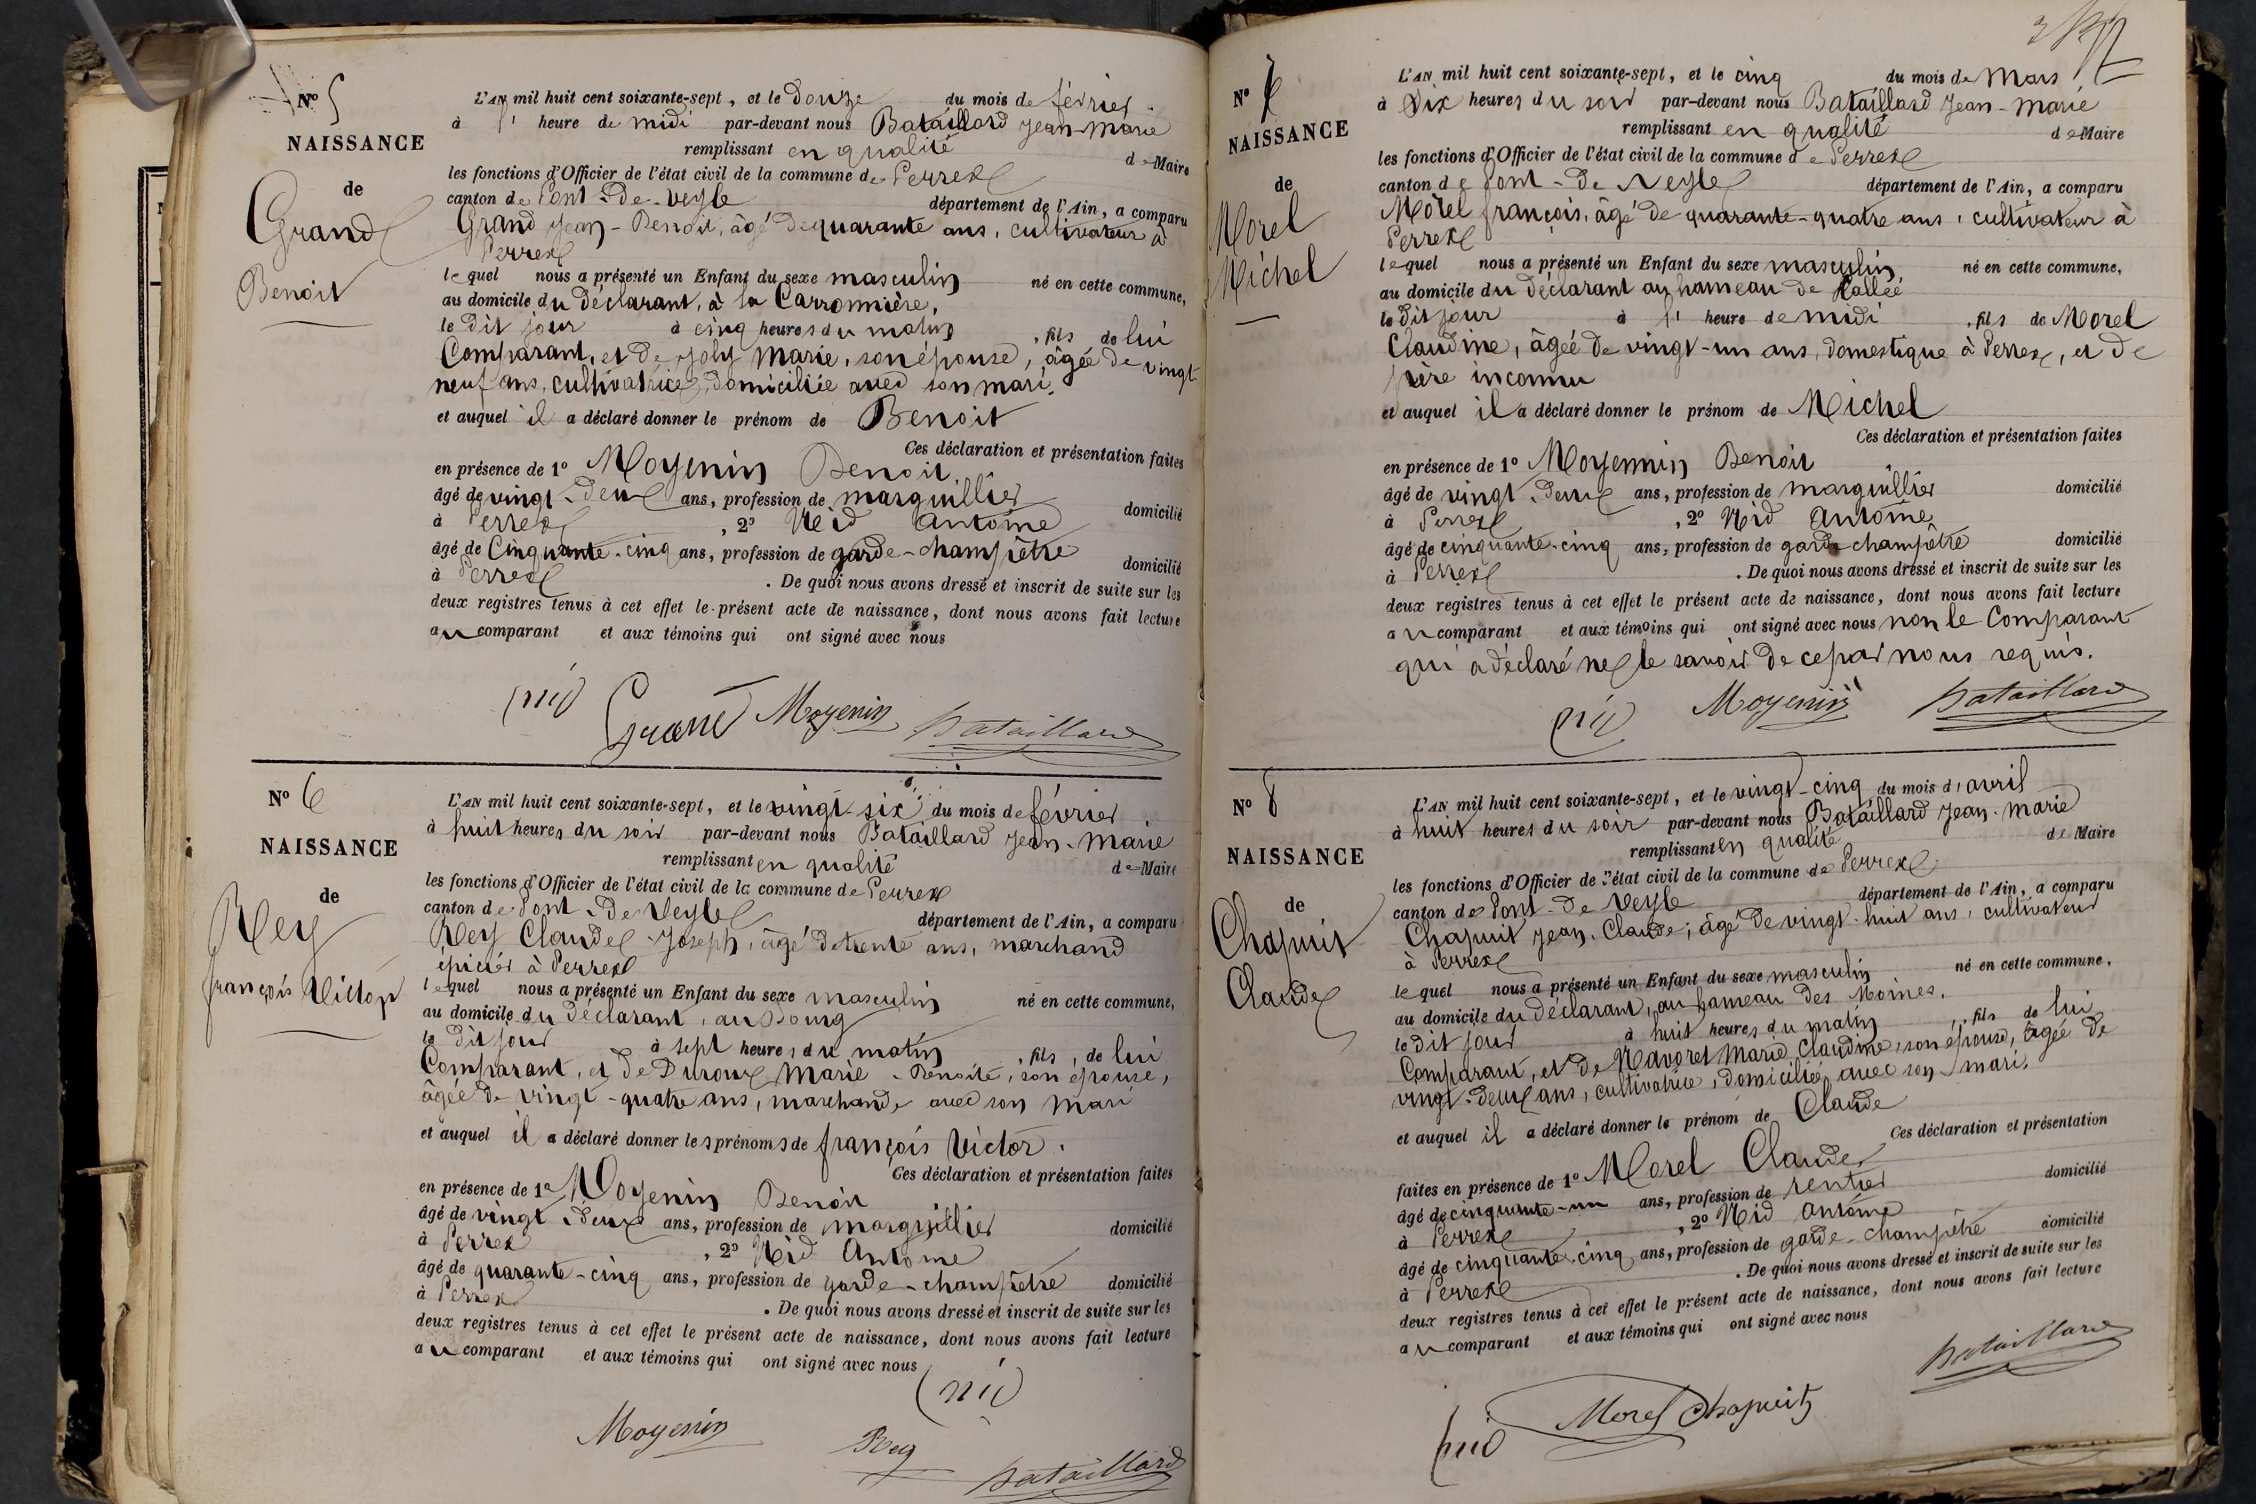 Nº 5
NAISSANCE
de
Grand
Benoit
L'AN mil huit cent soixante-sept, et le Douze du mois de février
à 1 heure de midi par-devant nous Bataillard Jean-Marie
remplissant en qualité de Maire
les fonctions d'Officier de l'état civil de la commune de Perrex
canton de Pont-de-Veyle département de l'Ain, a comparu
Grand Jean-Benoit, âgé de quarante ans, cultivateur à
Perrex
lequel nous a présenté un Enfant du sexe masculin né en cette commune,
au domicile du déclarant, à la Carronnière,
le dit jour à cinq heures du matin, fils de lui
Comparant, et de Joly Marie, son épouse, âgée de vingt
neuf ans, cultivatrice, domiciliée avec son mari.
et auquel il a déclaré donner le prénom de Benoit
Ces déclaration et présentation faites
en présence de 1º Moyenin Benoit
âgé de vingt-deux ans, profession de marguillier domicilié
à Perrex, 2º Nid Antoine
âgé de Cinquante-cinq ans, profession de garde-champêtre domicilié
à Perrex. De quoi nous avons dressé et inscrit de suite sur les
deux registres tenus à cet effet le présent acte de naissance, dont nous avons fait lecture
au comparant et aux témoins qui ont signé avec nous
Nid Grand Moyenin Bataillard
Nº 6
NAISSANCE
de
Rey
françois Victor
L'AN mil huit cent soixante-sept, et le vingt-six du mois de février
à huit heures du soir par-devant nous Bataillard Jean-Marie
remplissant en qualité de Maire
les fonctions d'Officier de l'état civil de la commune de Perrex
canton de Pont-de-Veyle département de l'Ain, a comparu
Rey Claude-Joseph, âgé de trente ans, marchand
épicier à Perrex
lequel nous a présenté un Enfant du sexe masculin né en cette commune,
au domicile du déclarant, au Bourg
le dit jour à sept heures du matin, fils, de lui
Comparant, et de Duroux Marie-Benoite, son épouse,
âgée de vingt-quatre ans, marchande avec son mari
et auquel il a déclaré donner les prénoms de françois Victor.
Ces déclaration et présentation faites
en présence de 1º Moyenin Benoit
âgé de vingt-deux ans, profession de marguillier domicilié
à Perrex, 2º Nid Antoine
âgé de quarante-cinq ans, profession de garde-champêtre domicilié
à Perrex. De quoi nous avons dressé et inscrit de suite sur les
deux registres tenus à cet effet le présent acte de naissance, dont nous avons fait lecture
au comparant et aux témoins qui ont signé avec nous
Nid
Moyenin Rey Bataillard
Nº 7
NAISSANCE
de
Morel
Michel
L'AN mil huit cent soixante-sept, et le cinq du mois de Mars
à Six heures du soir par-devant nous Bataillard Jean-Marie
remplissant en qualité de Maire
les fonctions d'Officier de l'état civil de la commune de Perrex
canton de Pont-de-Veyle département de l'Ain, a comparu
Morel françois, âgé de quarante-quatre ans, cultivateur à
Perrex
lequel nous a présenté un Enfant du sexe masculin né en cette commune,
au domicile du déclarant au hameau de
le dit jour à 1 heure de midi, fils de Morel
Claudine, âgée de vingt-un ans, domestique à Perrex, et de
père inconnu
et auquel il a déclaré donner le prénom de Michel
Ces déclaration et présentation faites
en présence de 1º Moyennin Benoit
âgé de vingt-deux ans, profession de marguillier domicilié
à Perrex, 2º Nid Antoine
âgé de cinquante-cinq ans, profession de garde champêtre domicilié
à Perrex. De quoi nous avons dressé et inscrit de suite sur les
deux registres tenus à cet effet le présent acte de naissance, dont nous avons fait lecture
au comparant et aux témoins qui ont signé avec nous non le Comparant
qui a déclaré ne le savoir de ce par nous requis.
Nid Moyenin Bataillard
Nº 8
NAISSANCE
de
Chapuit
Claude
L'AN mil huit cent soixante-sept, et le vingt-cinq du mois d'avril
à huit heures du soir par-devant nous Bataillard Jean-Marie
remplissant en qualité de Maire
les fonctions d'Officier de l'état civil de la commune de Perrex
canton de Pont-de-Veyle département de l'Ain, a comparu
Chapuit Jean-Claude, âgé de vingt-huit ans, cultivateur
à Perrex
lequel nous a présenté un Enfant du sexe masculin né en cette commune,
au domicile du déclarant, au hameau des Moines,
le dit jour à huit heures du matin, fils de lui
Comparant, et de Navoret Marie Claudine, son épouse, âgée de
vingt-deux ans, cultivatrice, domiciliée avec son mari.
et auquel il a déclaré donner le prénom de Claude
Ces déclaration et présentation
faites en présence de 1º Morel Claude
âgé de cinquante-un ans, profession de rentier domicilié
à Perrex, 2º Nid Antoine
âgé de cinquante-cinq ans, profession de garde-champêtre domicilié
à Perrex. De quoi nous avons dressé et inscrit de suite sur les
deux registres tenus à cet effet le présent acte de naissance, dont nous avons fait lecture
au comparant et aux témoins qui ont signé avec nous
Bataillard
Nid Morel Chapuit